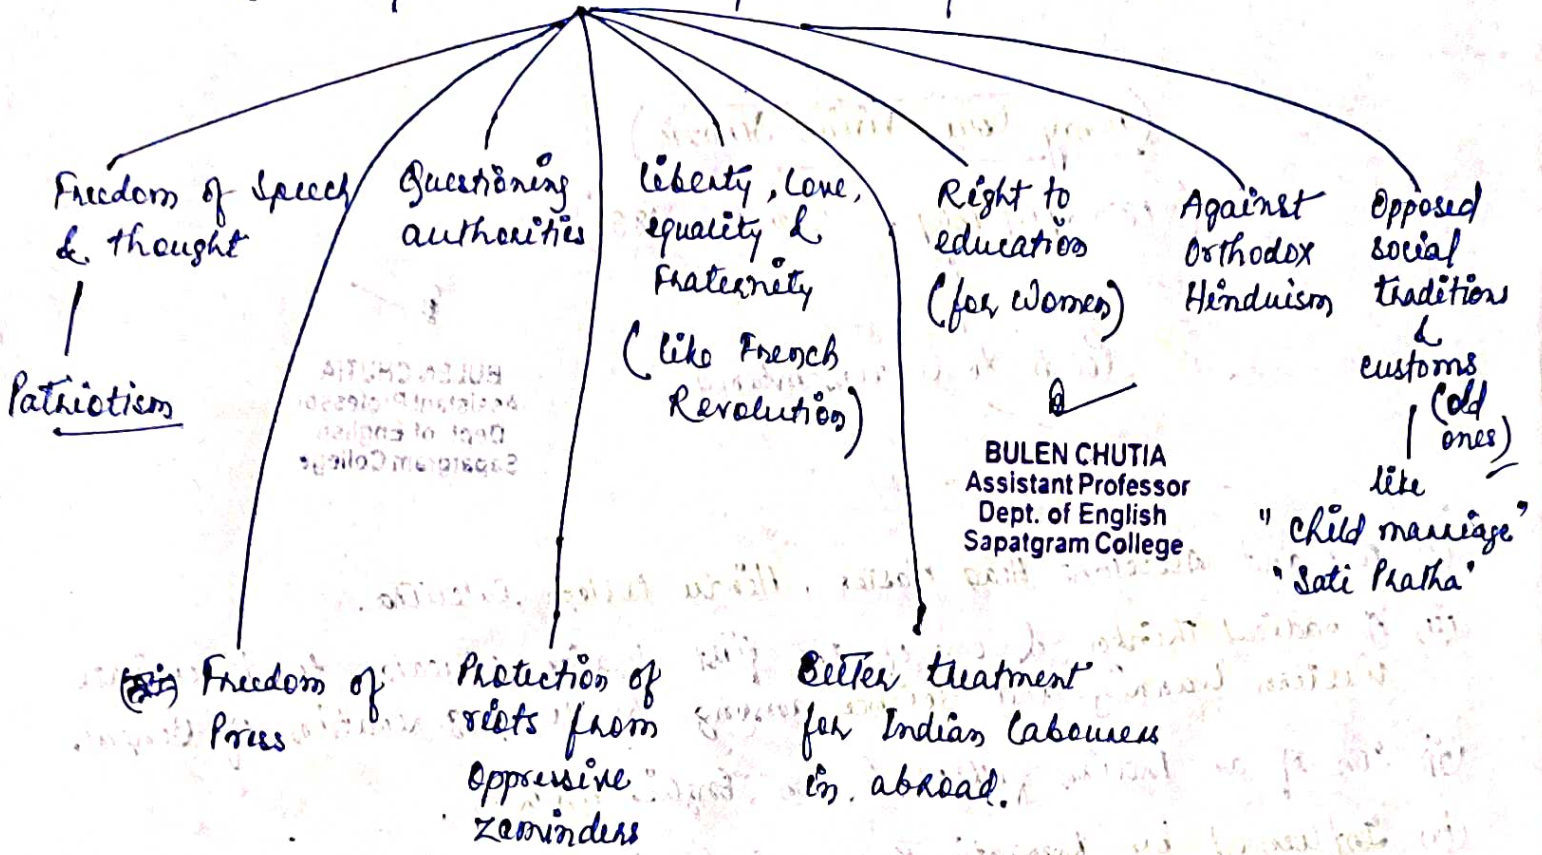 Freedom of Speech
& thought
Patriotism
Questioning
authorities
Liberty, Love,
equality &
Fraternity
(like French
Revolution)
Right to
education
(for women)
Against
Orthodox
Hinduism
Opposed
social
traditions
&
customs
(old
ones)
like
"Child marriage"
"Sati Pratha"
BULEN CHUTIA
Assistant Professor
Dept. of English
Sapatgram College
Freedom of
Press
Protection of
riots from
Oppressive
zaminders
Better treatment
for Indian labourers
in abroad.